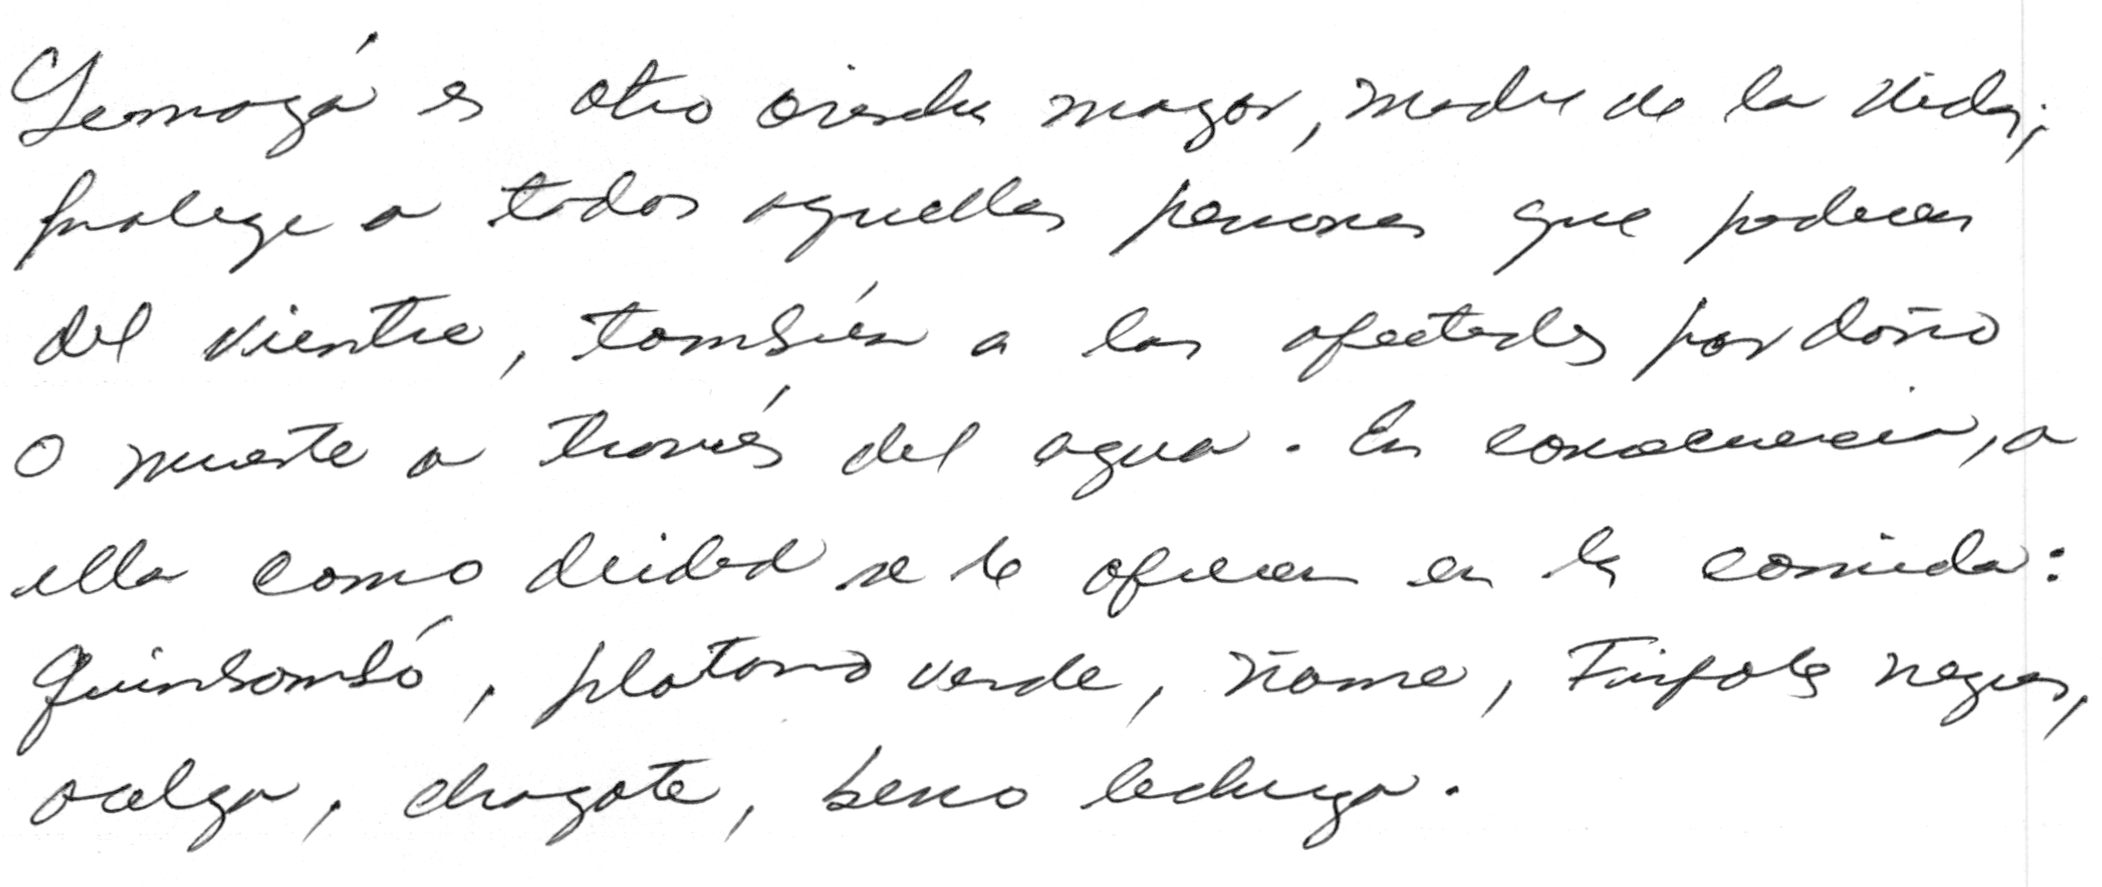 Yemayá es otro orisha mayor, madre de la vida;
protege a todas aquellas personas que padecen
del vientre, también a los afectados por daño
o muerte a través del agua. En consecuencia, a
ella como deidad se le ofrecen en la comida:
quimbombó, platano verde, ñame, Frijoles negros,
acelga, chayote, berro lechuga.